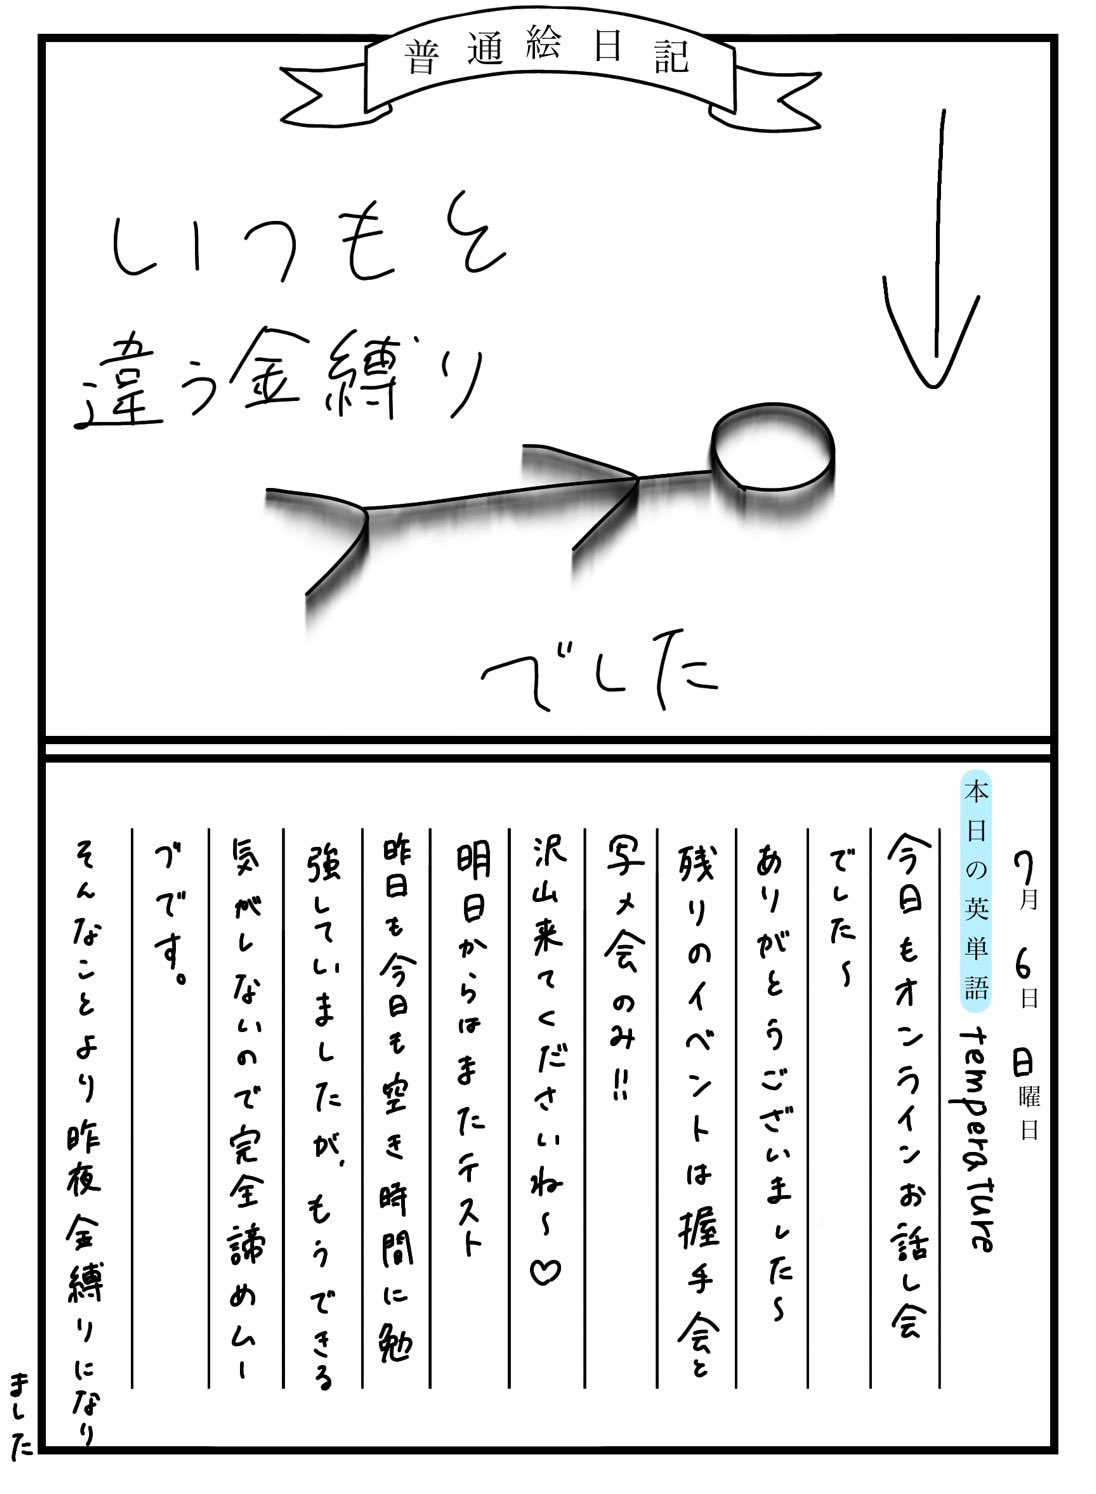 普通絵日記
いつもと
違う金縛り
でした
7月6日日曜日
本日の英単語 temperature
今日もオンラインお話し会
でした〜
ありがとうございました〜
残りのイベントは握手会と
写メ会のみ!!
沢山来てくださいね〜♡
明日からはまたテスト
昨日も今日も空き時間に勉
強していましたが、もうできる
気がしないので完全諦めムー
ブです。
そんなことより昨夜金縛りになり
ました